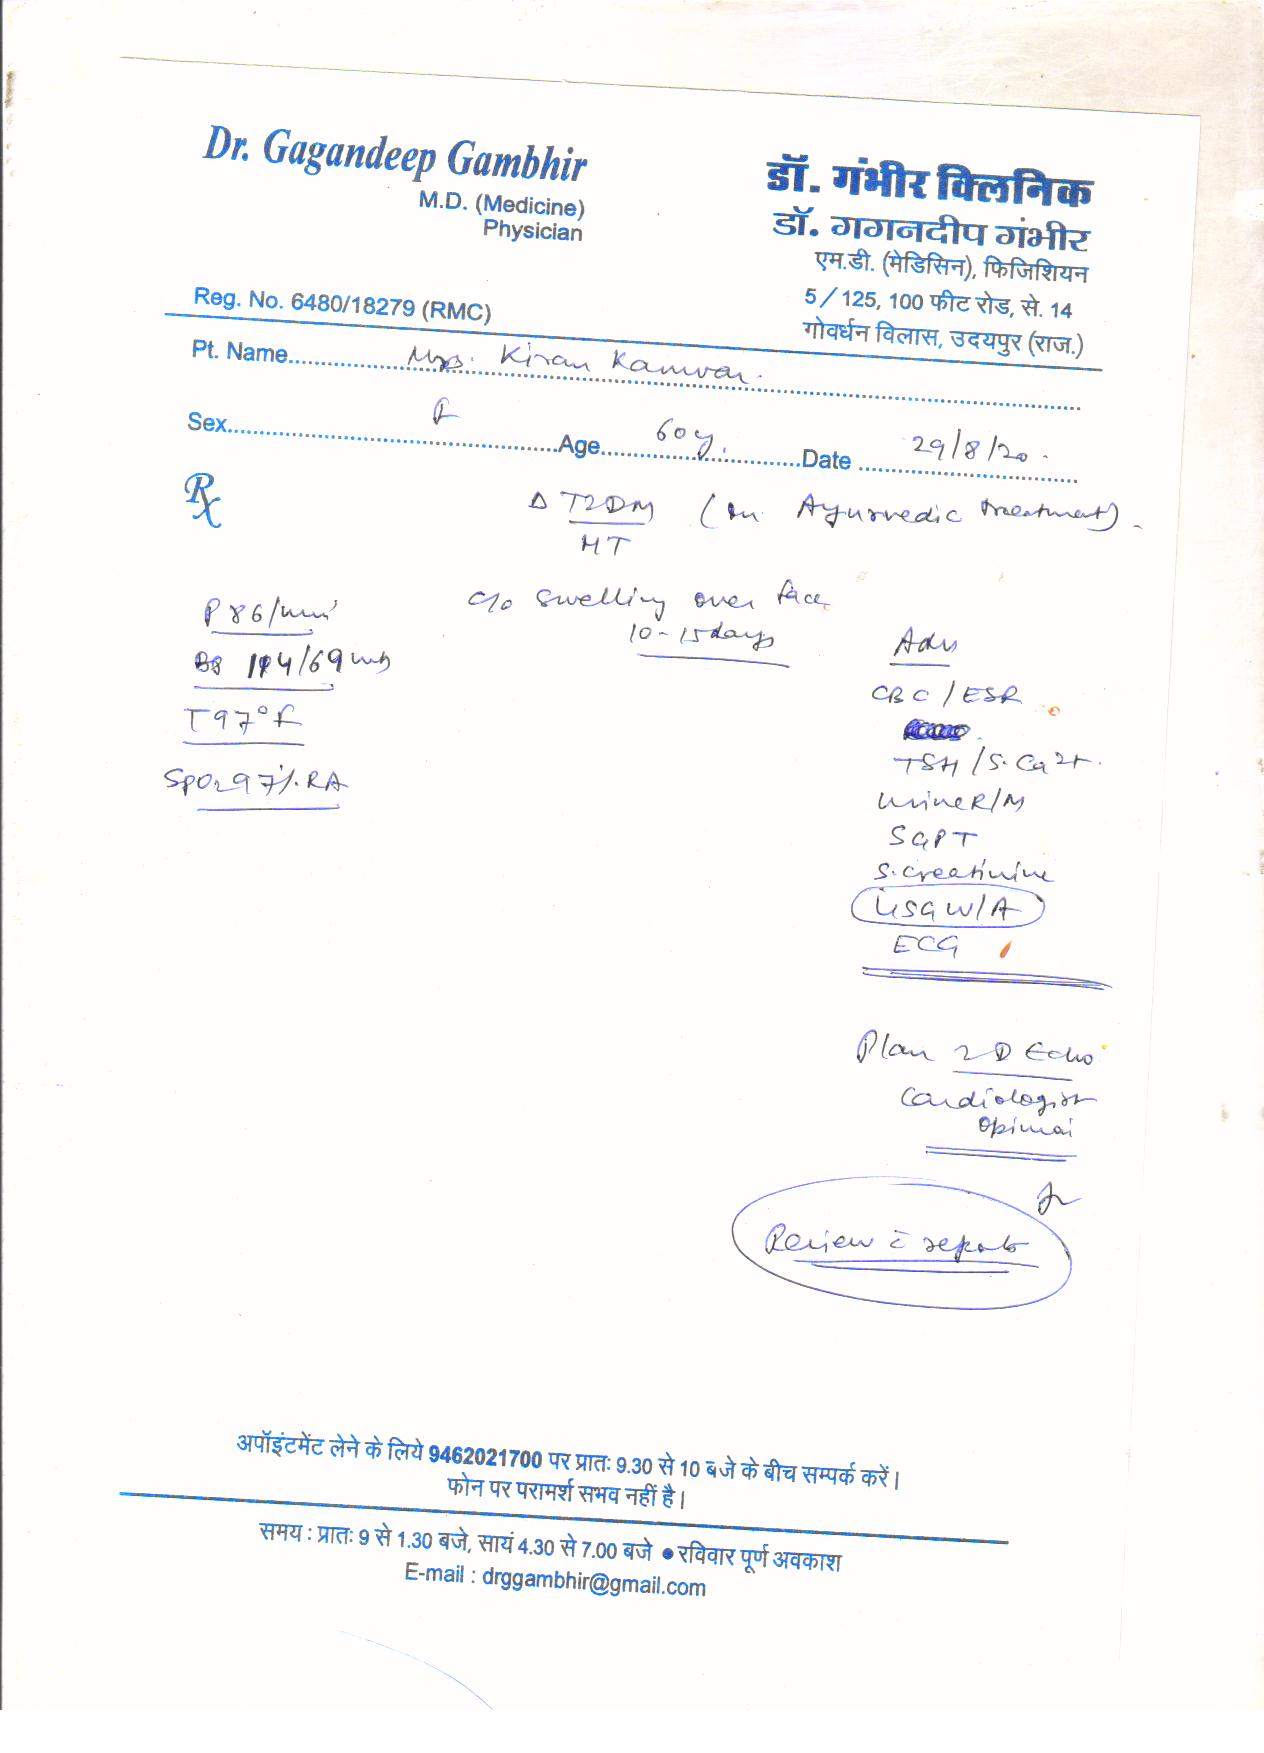 Dr. Gagandeep Gambhir
M.D. (Medicine)
Physician
Reg. No. 6480/18279 (RMC)
डॉ. गंभीर क्लिनिक
डॉ. गगनदीप गंभीर
एम.डी. (मेडिसिन), फिजिशियन
5/125, 100 फीट रोड, से. 14
गोवर्धन विलास, उदयपुर (राज.)
Pt. Name Mrs. Kiran Kanwar.
Sex F Age 60y. Date 29/8/20.
Rx
Δ T2DM (on Ayurvedic treatment).
HT
c/o swelling over face
10-15 days
P 86/min
114/69
T 97°F
SpO2 97% RA
Adv
CBC / ESR
TSH / S. Ca2+.
Urine R/M
SGPT
S. creatinine
USG W/A
ECG
Plan 2D Echo
Cardiologist
Review c̄ reports
अपॉइंटमेंट लेने के लिये 9462021700 पर प्रातः 9.30 से 10 बजे के बीच सम्पर्क करें।
फोन पर परामर्श सभव नहीं है।
समय : प्रातः 9 से 1.30 बजे, सायं 4.30 से 7.00 बजे ● रविवार पूर्ण अवकाश
E-mail : drggambhir@gmail.com